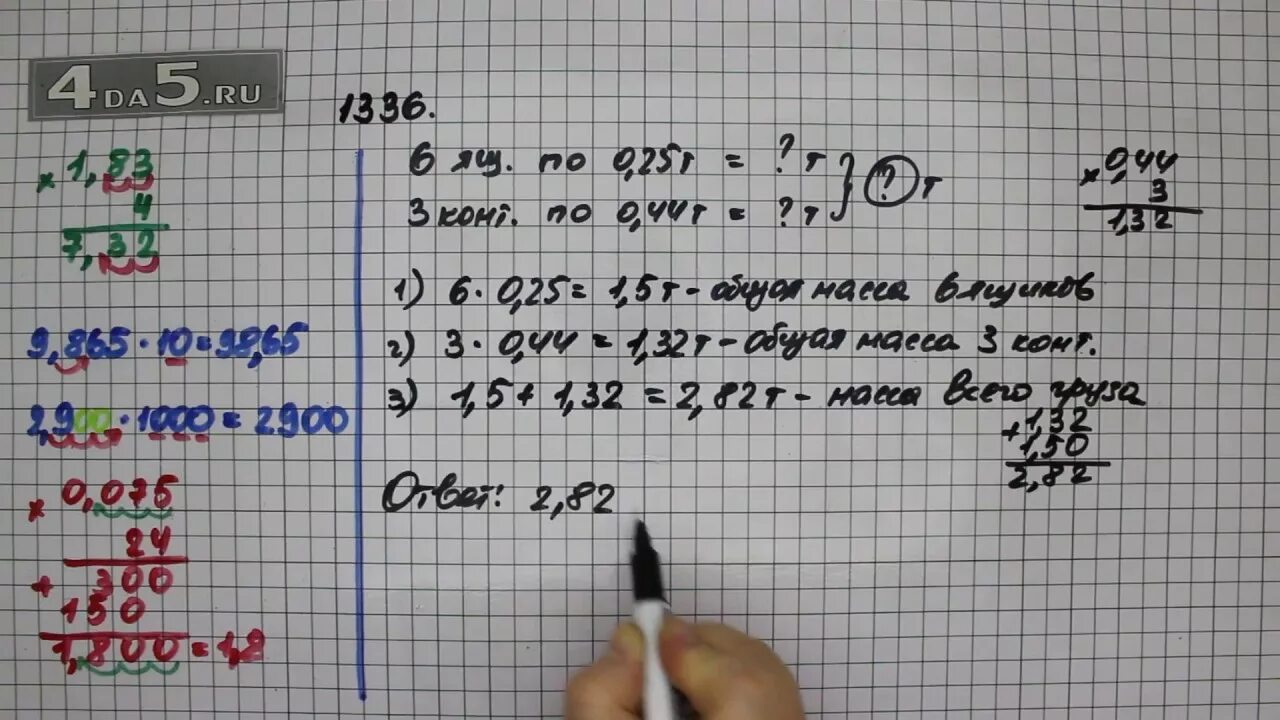 4DA5.RU
1336.
× 1,83
4
7,32
9,865 · 10 = 98,65
2,900 · 1000 = 2900
× 0,075
24
+ 300
150
1,800 = 1,8
6 ящ. по 0,25т = ? т } ? т
3 конт. по 0,44т = ? т
× 0,44
3
1,32
1) 6 · 0,25 = 1,5 т - общая масса 6 ящиков
2) 3 · 0,44 = 1,32т - общая масса 3 конт.
3) 1,5 + 1,32 = 2,82т - масса всего груза
+ 1,32
1,50
2,82
Ответ: 2,82